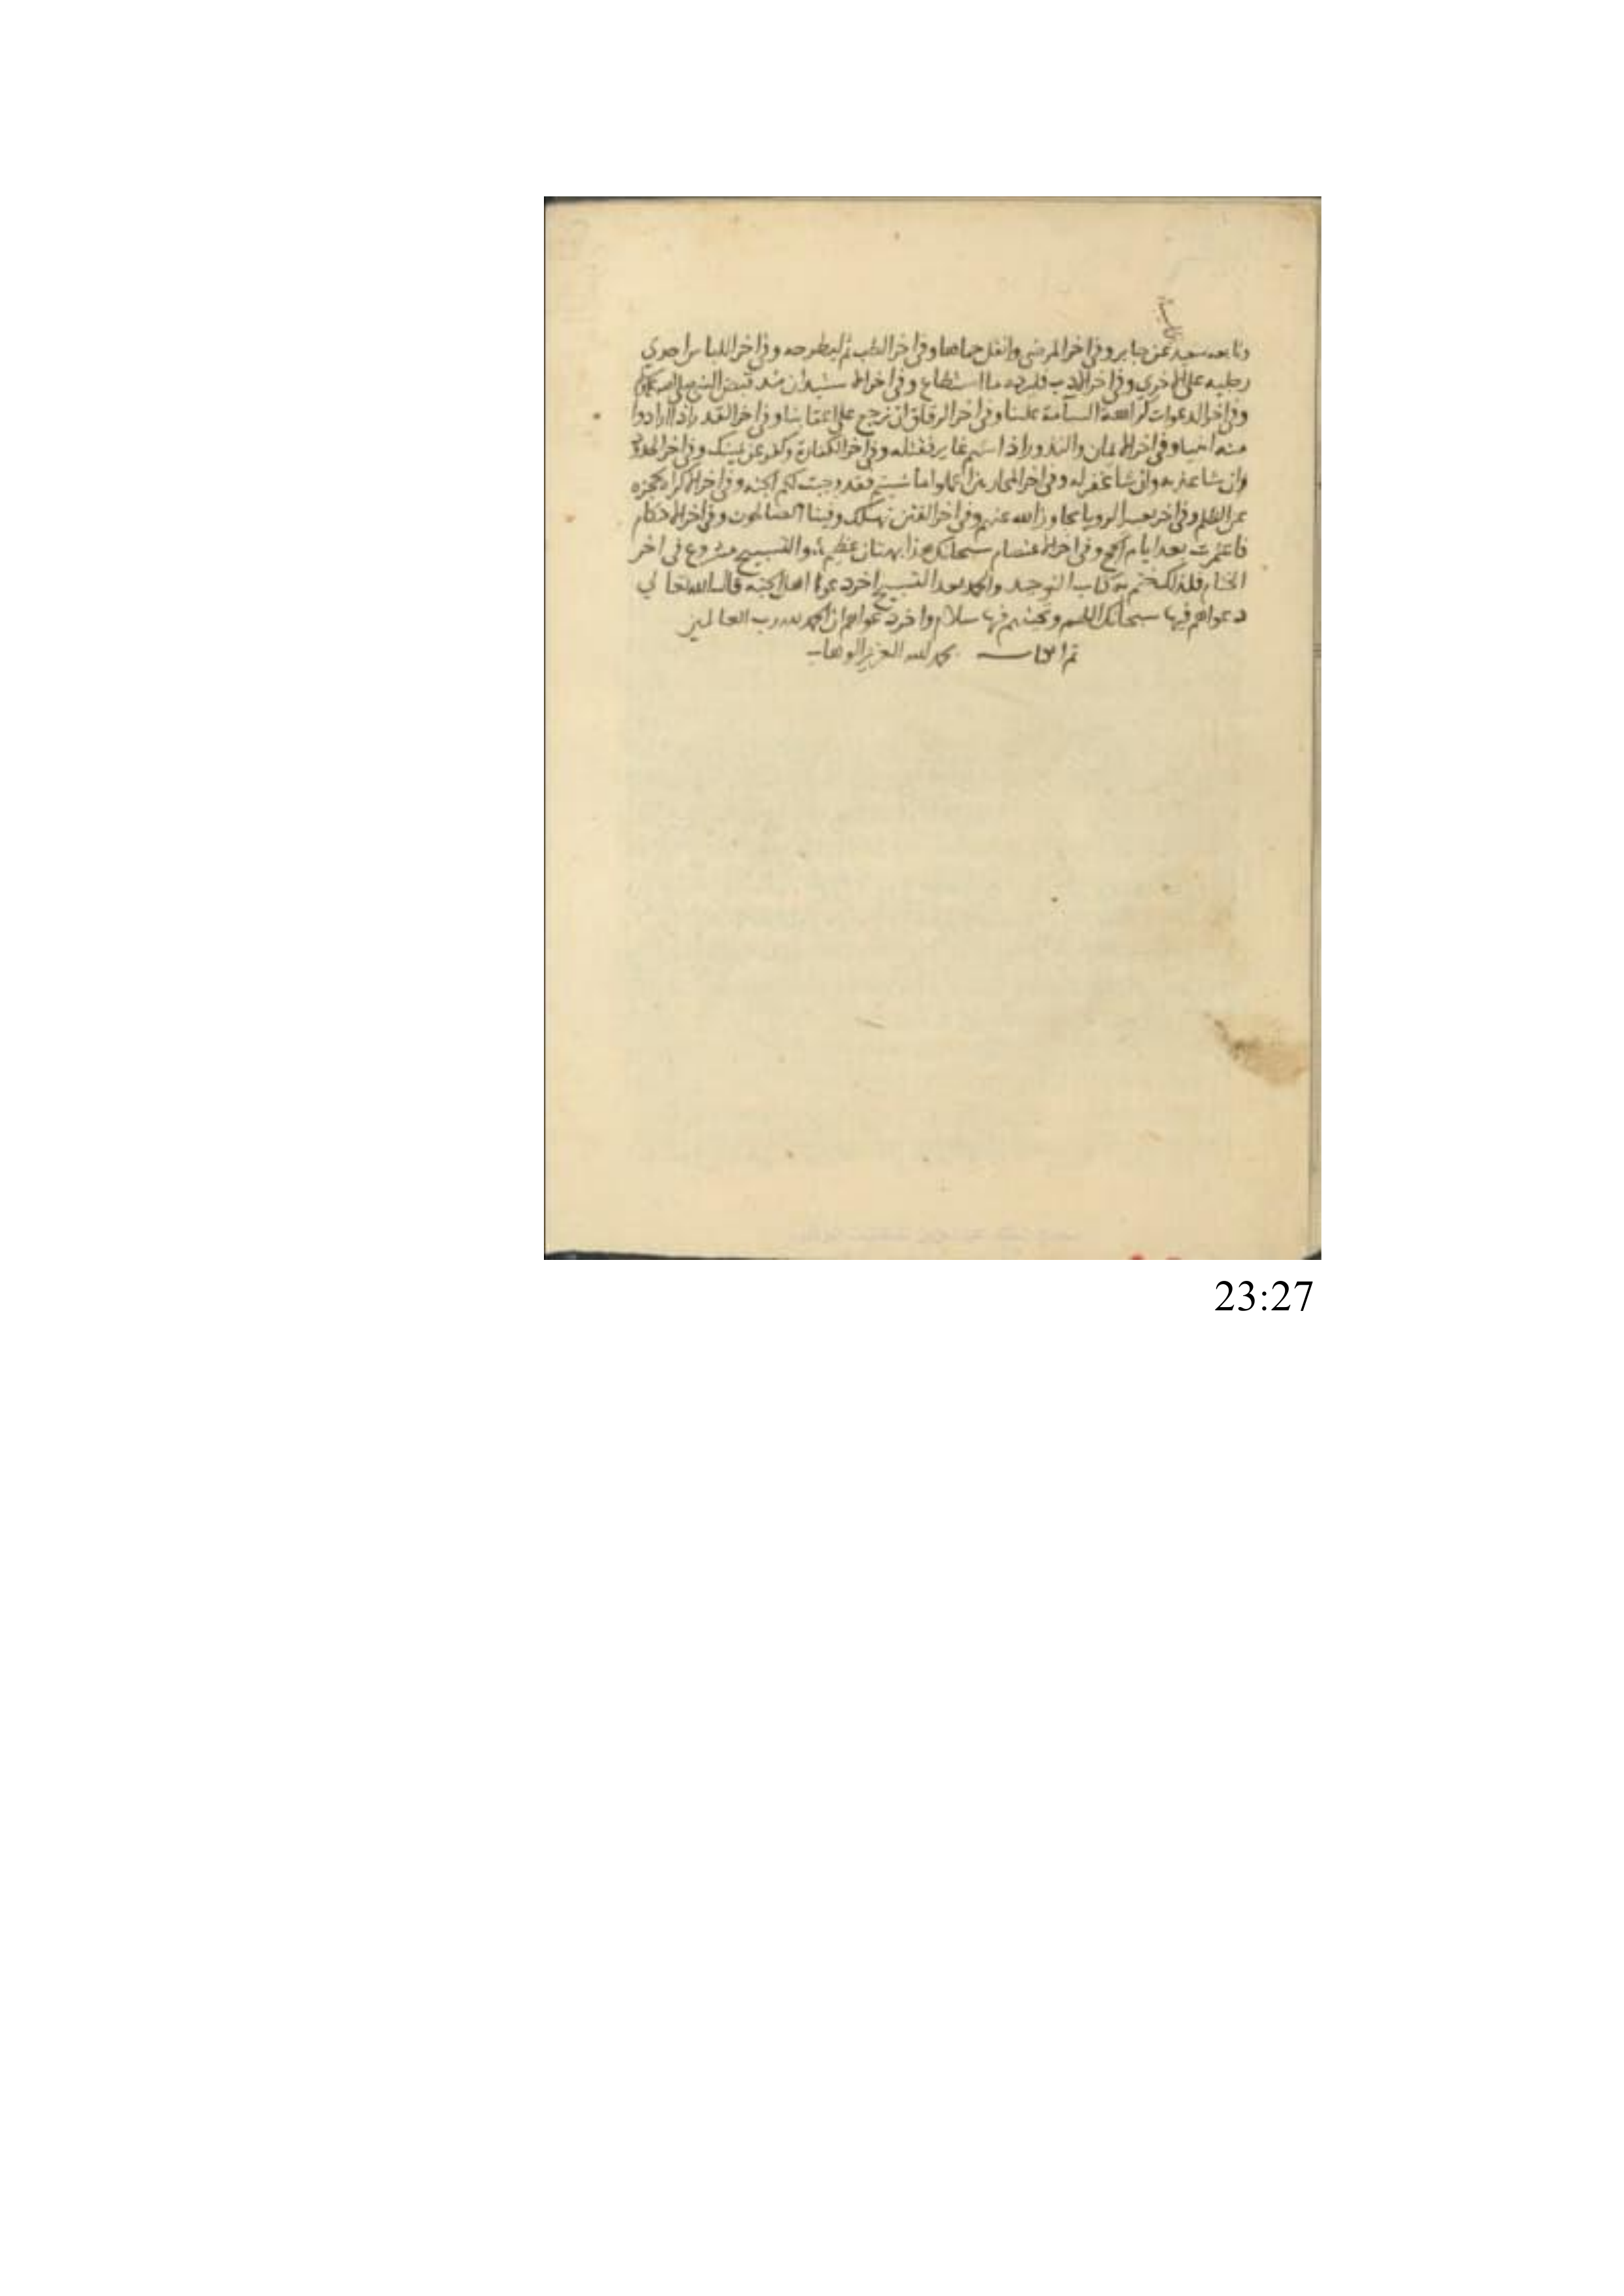 وتابعه سعيد عن جابر وفي اخر المرضى وانقل حماها وفي اخر الطب ثم ليطرحه وفي اخر اللباس احدي
رجليه على الاخري وفي اخر الادب فليرده ما استطاع وفي اخر الا ستيذان منذ قبض النبي صلى الله عليه وسلم
وفي اخر الدعوات كراهة السآمة علينا وفي اخر الرقاق ان نرجع على اعقابنا وفي اخر القدر اذا ارادوا
منه ابينا وفي اخر الايمان والنذور اذا سهم غاير فقتله وفي اخر الكفارة وكفر عن يمينك وفي اخر الحدود
وان شا عذبه وان شا غفر له وفي اخر المحاربين اعملوا ما شيتم فقد وجبت لكم الجنه وفي اخر الاكراه تحجزه
عن الظلم وفي اخر تعبير الرويا تجاوز الله عنهم وفي اخر الفتن نهلك وفينا الصالحون وفي اخر الاحكام
فاعتمرت بعد ايام الحج وفي اخر الاعتصام سبحانك هذا بهتان عظيم والتسبيح مشروع في اخر
الختام فلذلك ختم به كتاب التوحيد والحمد بعد التسبيح اخر دعوا اهل الجنه قال الله تعا لي
دعواهم فيها سبحانك اللهم وتحيتهم فيها سلام واخر دعواهم ان الحمد لله رب العالمين
تم الكتاب بحمد لله العزيز الوهاب
23:27